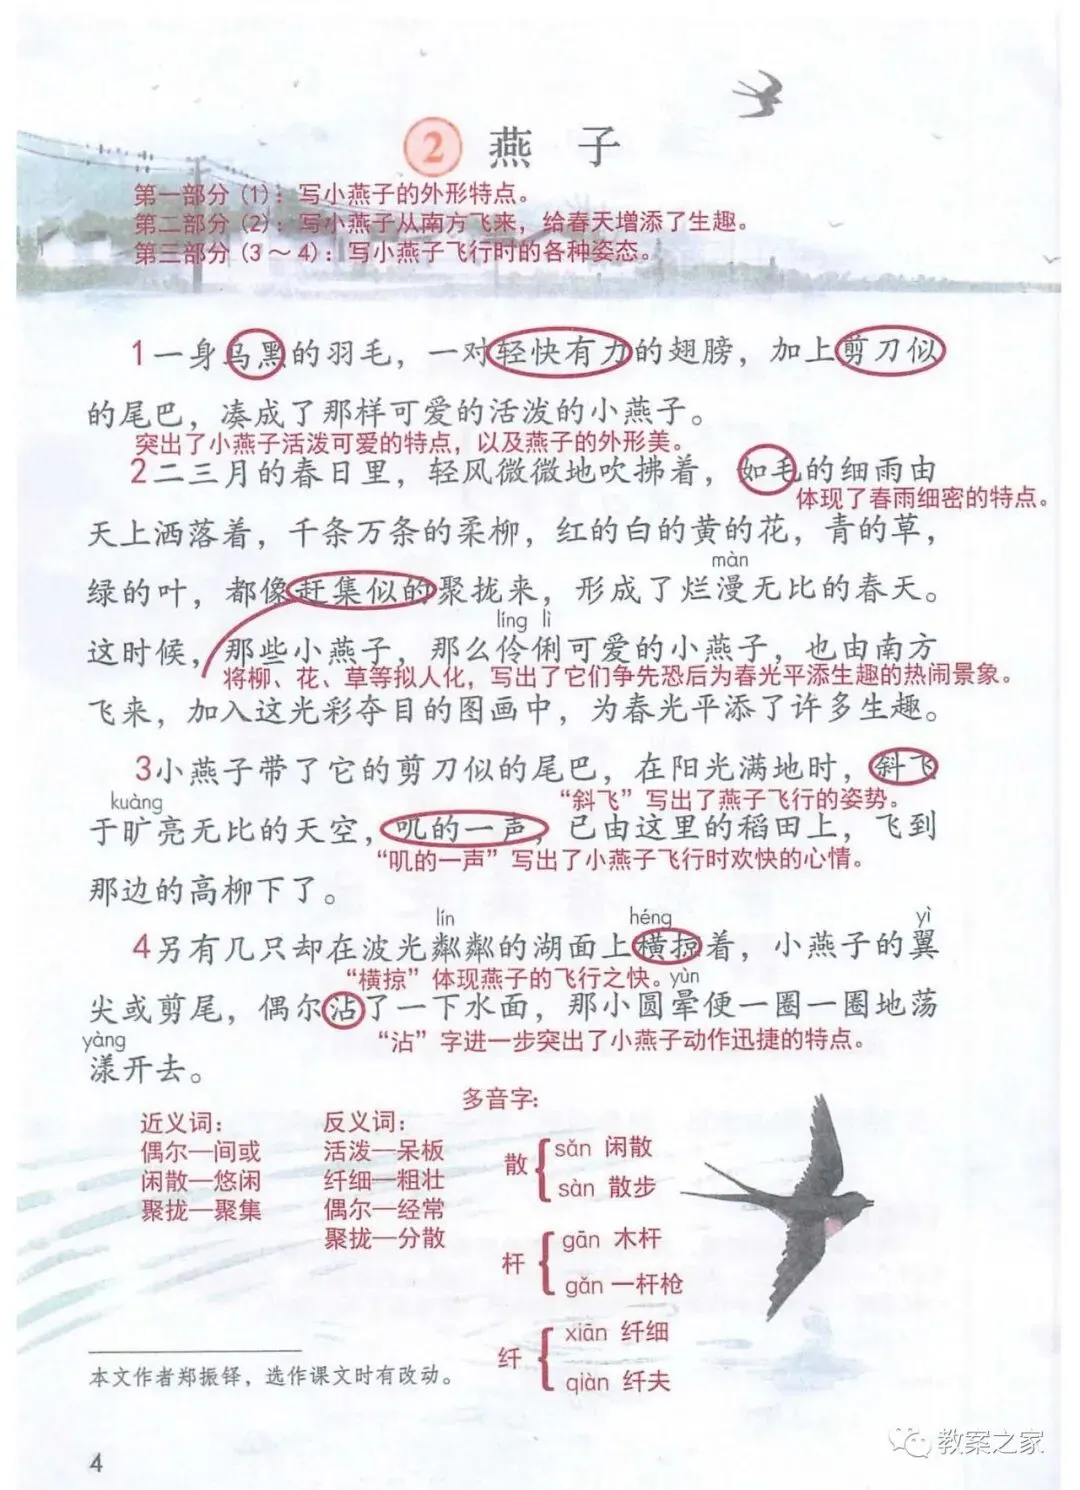 2 燕子
第一部分(1)：写小燕子的外形特点。
第二部分(2)：写小燕子从南方飞来，给春天增添了生趣。
第三部分(3～4)：写小燕子飞行时的各种姿态。
1一身乌黑的羽毛，一对轻快有力的翅膀，加上剪刀似
的尾巴，凑成了那样可爱的活泼的小燕子。
突出了小燕子活泼可爱的特点，以及燕子的外形美。
2二三月的春日里，轻风微微地吹拂着，如毛的细雨由
体现了春雨细密的特点。
天上洒落着，千条万条的柔柳，红的白的黄的花，青的草，
màn
绿的叶，都像赶集似的聚拢来，形成了烂漫无比的春天。
líng lì
这时候，那些小燕子，那么伶俐可爱的小燕子，也由南方
将柳、花、草等拟人化，写出了它们争先恐后为春光平添生趣的热闹景象。
飞来，加入这光彩夺目的图画中，为春光平添了许多生趣。
3小燕子带了它的剪刀似的尾巴，在阳光满地时，斜飞
kuàng
“斜飞”写出了燕子飞行的姿势。
于旷亮无比的天空，叽的一声，已由这里的稻田上，飞到
“叽的一声”写出了小燕子飞行时欢快的心情。
那边的高柳下了。
lín héng yì
4另有几只却在波光粼粼的湖面上横掠着，小燕子的翼
“横掠”体现燕子的飞行之快。yùn
尖或剪尾，偶尔沾了一下水面，那小圆晕便一圈一圈地荡
yàng
“沾”字进一步突出了小燕子动作迅捷的特点。
漾开去。
近义词：
偶尔—间或
闲散—悠闲
聚拢—聚集
反义词：
活泼—呆板
纤细—粗壮
偶尔—经常
聚拢—分散
多音字：
散 sǎn 闲散
sàn 散步
杆 gān 木杆
gǎn 一杆枪
纤 xiān 纤细
qiàn 纤夫
本文作者郑振铎，选作课文时有改动。
4
教案之家